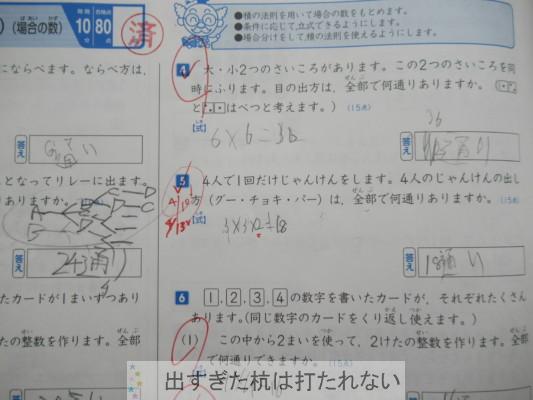 (場合の数)
ばあい かず
10分
80点
合格点
済
●積の法則を用いて場合の数をもとめます。
●条件に応じて,立式できるようにします。
●場合分けをして,積の法則を使えるようにします。
にならべます。ならべ方は,
答え
となってリレーに出ます。
りありますか。
答え
243通り
たカードが1まいずつあり
たの整数を作ります。全部
答え
4 大・小2つのさいころがあります。この2つのさいころを同
時にふります。目の出方は,全部で何通りありますか。(
と はべつと考えます。) (15点)
[式]
6×6=36
36
答え
5 4人で1回だけじゃんけんをします。4人のじゃんけんの出し
方(グー・チョキ・パー)は,全部で何通りありますか。(15点)
[式]
4/10
4/13
答え
18通り
6 1,2,3,4の数字を書いたカードが,それぞれたくさん
あります。(同じ数字のカードをくり返し使えます。)
(1) この中から2まいを使って,2けたの整数を作ります。全部
で何通りできますか。(15点)
出すぎた杭は打たれない